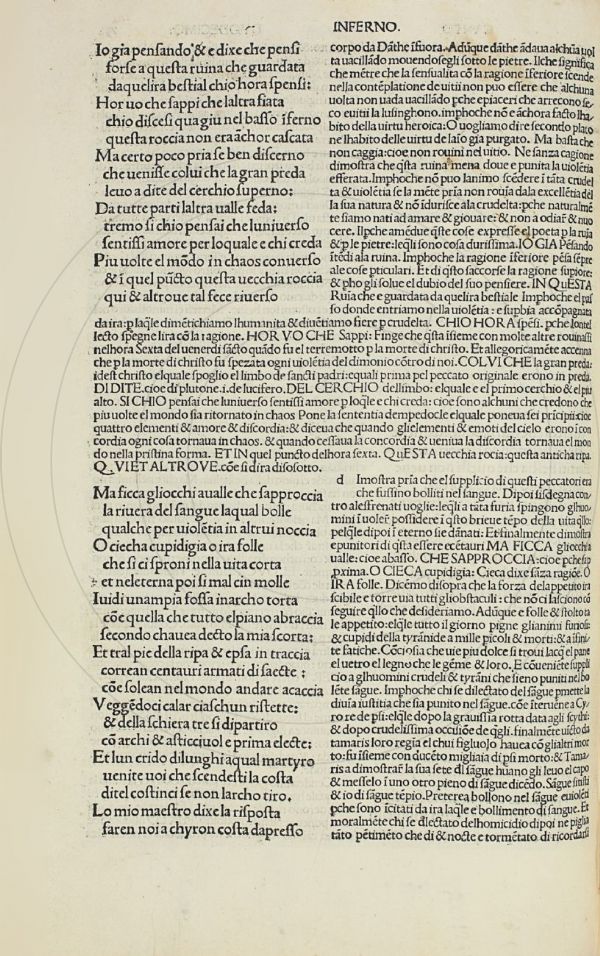 INFERNO.
Io gia pensando; & e dixe che pensi
forse a questa ruina che guardata
da quelira bestial chio hora spensi:
Hor uo che sappi che laltra fiata
chio discesi qua giu nel basso īferno
questa roccia non era ächor cascata
Ma certo poco pria se ben discerno
che uenisse colui che la gran preda
leuo a dite del cerchio superno:
Da tutte parti laltra ualle feda:
tremo si chio pensai che luniuerso
sentissi amore per loquale e chi creda
Piu uolte el mōdo in chaos conuerso
& ī quel pūcto questa uecchia roccia
qui & altroue tal fece riuerso
corpo da Dāthe īfuora. Adūque dāthe ādaua alchūa uol
ta uacillādo mouendosegli sotto le pietre. Ilche significa
che mētre che la sensualita cō la ragione īferiore scende
nella contēplatione de uitii non puo essere che alchuna
uolta non uada uacillādo pche epiaceri che arrecono se
co euitii la lusinghono. imphoche nō e ächora facto lha
bito della uirtu heroica: O uogliamo dire secondo plato
ne lhabito delle uirtu de laīo gia purgato. Ma basta che
non caggia: cioe non rouini nel uitio. Ne sanza cagione
dimostra che qsta ruina mena doue e punita la uiolētia
efferata. Imphoche nō puo lanimo scēdere ī tāta crudel
ta & uiolētia se la mēte pria non rouia dala excellētia del
la sua natura & nō īdurisce ala crudelta: pche naturalmē
te siamo nati ad amare & giouare: & non a odiar & nuo
cere. Ilpche amedue qste cose expresse el poeta p la ruina
& p le pietre: leqli sono cosa durissima. IO GIA Pēsando
ītēdi ala ruina. Imphoche la ragione īferiore pēsa sēpre
ale cose pticulari. Et di qsto saccorse la ragione supiore:
& pho gli solue el dubio del suo pensiere. IN QuESTA
Ruia che e guardata da quelira bestiale Imphoche el pas
so donde entriamo nella uiolētia: e supbia accōpagnata
da ira: p laqle dimētichiamo lhumanita & diuētiamo fiere p crudelta. CHIO HORA spēsi. pche lontel
lecto spegne lira cō la ragione. HOR VO CHE Sappi: Finge che qsta īsieme con molte altre rouinassi
nelhora Sexta del uenerdi sācto quādo fu el terremotto p la morte di christo. Et allegoricamēte accenna
che p la morte di christo fu spezata ogni uiolētia del dimonio cōtro di noi. COLVI CHE la gran preda:
idest christo elquale spoglio el limbo de sancti padri: equali prima pel peccato originale erono in preda.
DI DITE. cioe di plutone. i. de lucifero. DEL CERCHIO del limbo: elquale e el primo cerchio & el piu
alto. SI CHIO pensai che luniuerso sentissi amore p loqle e chi creda: cioe sono alchuni che credono che
piu uolte el mondo sia ritornato in chaos Pone la sententia dempedocle elquale poneua sei pricipii: cioe
quattro elementi & amore & discordia: & diceua che quando glielementi & emoti del cielo erono ī con
cordia ogni cosa tornaua in chaos. & quando cessaua la concordia & ueniua la discordia tornaua el mon
do nella pristina forma. ET IN quel puncto delhora sexta. QuESTA uecchia rocia: questa anticha ripa.
Q VI ET ALTROVE. cōe si dira disosotto.
Ma ficca gliocchi aualle che sapproccia
la riuera del sangue laqual bolle
qualche per uiolētia in altrui noccia
O ciecha cupidigia o ira folle
che si ci sproni nella uita corta
et neleterna poi si mal cin molle
Iuidi unampia fossa inarcho torta
cōe quella che tutto elpiano abraccia
secondo chauea decto la mia scorta:
Et tral pie della ripa & epsa in traccia
correan centauri armati di saecte:
cōe solean nel mondo andare acaccia
Veggēdoci calar ciaschun ristette:
& della schiera tre si dipartiro
cō archi & asticciuol e prima electe:
Et lun crido dilunghi aqual martyro
uenite uoi che scendesti la costa
ditel costinci se non larcho tiro.
Lo mio maestro dixe la risposta
faren noi a chyron costa dapresso
d Imostra pria che el supplicio di questi peccatori era
che fussino bolliti nel sangue. Dipoi sisdegna con
tro alesfrenati uoglie: leqli a tāta furia spingono glhuo
mini ī uoler possidere ī qsto brieue tēpo della uita qllo:
pelqle dipoi ī eterno sie dānati: Et finalmente dimostra
epunitori di qsta essere ecētauri MA FICCA gliocchi a
ualle: cioe abasso. CHE SAPPROCCIA: cioe pche sap
pxima. O CIECA cupidigia: Cieca dixe sāza ragiōe. O
IRA folle. Dicēmo disopra che la forza del appetito ira
scibile e torre uia tutti gliobstaculi: che nō ci lasciono cō
seguire qllo che desideriamo. Adūque e folle & stolto ta
le appetito: elqle tutto il giorno pigne glianimi furiosi:
& cupidi della tyrānide a mille picoli & morti: & a īfini
te fatiche. Cōciosia che uie piu dolce si troui lacq el pane
el uetro el legno che le gēme & loro. E cōueniēte suppli
cio a glhuomini crudeli & tyrāni che sieno puniti nel bo
lēte sāgue. Imphoche chi se dilectato del sāgue pmette la
diuīa iustitia che sia punito nel sāgue. cōe īteruēne a Cy
ro re de psi: elqle dopo la grauissīa rotta data agli scythi:
& dopo crudelissima occisiōe de qgli. finalmēte uicto da
tamaris loro regīa el chui figluolo hauea cō glialtri mor
to: fu īsieme con ducēto migliaia di psi morto: & Tama
ris a dimostrar la sua sete dl sāgue huāno gli leuo el capo
& messelo ī uno otro pieno di sāgue dicēdo. Sāgue sitisti
& io di sāgue tēpio. Preterea bollono nel sāgue euiolēti
pche sono īcitati da ira laqle e bollimento di sangue. Et
moralmēte chi se dlectato delhomicidio dipoi ne piglia
tāto pētimēto che di & nocte e tormētato di ricordarsi